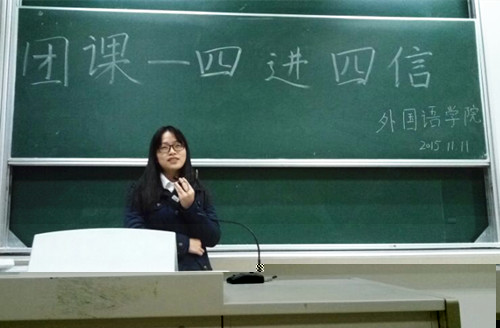 团课—四进四信
外国语学院
2015.11.11